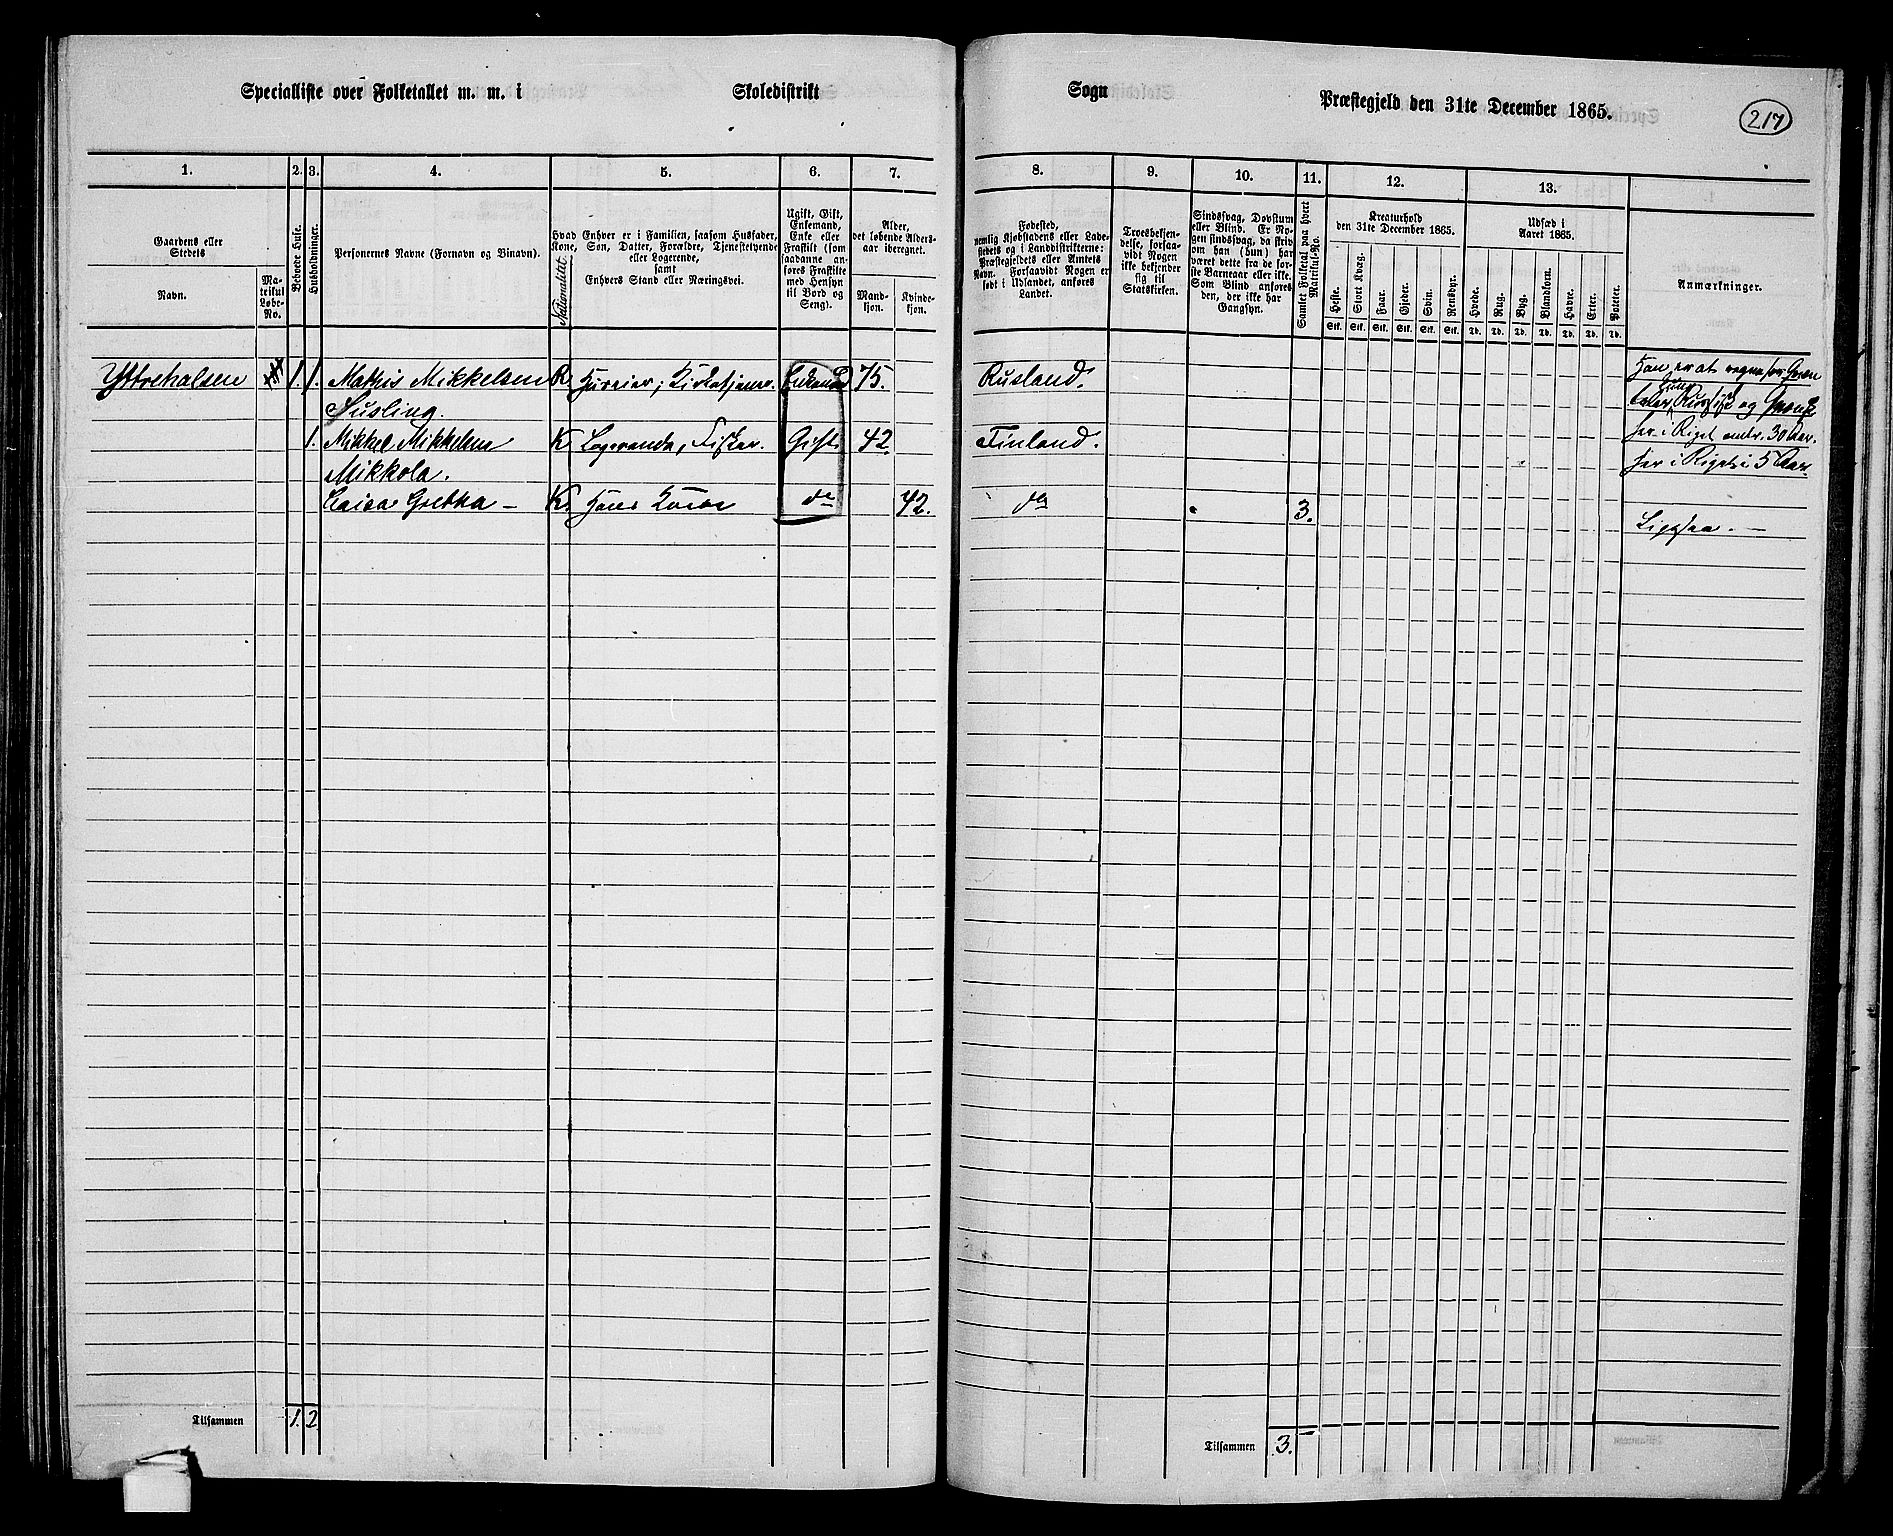 Specialliste over Folketallet m. m. i Skoledistrikt Sogn Præstegjeld den 31te December 1865.
217
1. 2. 3. 4. 5. 6. 7. 8. 9. 10. 11. 12. 13.
Gaardens eller Stedets
Navn.
Matrikul Løbe-No.
Beboede Huse.
Husholdninger.
Personernes Navne (Fornavn og Binavn).
Nationalitet
Hvad Enhver er i Familien, saasom Husfader,
Kone, Søn, Datter, Forældre, Tjenestetyende
eller Logerende,
samt
Enhvers Stand eller Næringsvei.
Ugift, Gift,
Enkemand,
Enke eller
Fraskilt (som
saadanne an-
føres Fraskilte
med Hensyn
til Bord og
Seng).
Alder,
det løbende Alders-
aar iberegnet.
Mand-
kjøn.
Kvinde-
kjøn.
Fødested,
nemlig Kjøbstadens eller Lade-
stedets og i Landdistrikterne:
Præstegjeldets eller Amtets
Navn. Forsaavidt Nogen er
født i Udlandet, anføres
Landet.
Troesbekjen-
delse, forsaa-
vidt Nogen
ikke bekjender
sig til
Statskirken.
Sindssvag, Døvstum
eller Blind. Er No-
gen sindssvag, da skriv
om han (hun) har
været dette fra de før-
ste Barneaar eller ikke.
Som Blind anføres
den, der ikke har
Gangsyn.
Samlet Folketal paa hvert
Matrikul-No.
Kreaturhold
den 31te December 1865.
Heste. Stort Kvæg. Faar. Gjeder. Svin. Rensdyr.
Stk. Stk. Stk. Stk. Stk. Stk.
Udsæd i
Aaret 1865.
Hvede. Rug. Byg. Blandkorn. Havre. Erter. Poteter.
Td. Td. Td. Td. Td. Td. Td.
Anmærkninger.
Yttrehalsen 1. 1. Mathis Mikkelsen R 75. Rusland.
Susling.
1. Mikkel Mikkelsen K Logerende, Fisker. Gift 42. Finland.
her i Riget omtr. 30 Aar.
Mikkola.
her i Riget i 5 Aar
Caisa Gretha — K. Hans Kone do 42. do 3.
Ligesaa. —
Tilsammen 1. 2
Tilsammen 3.